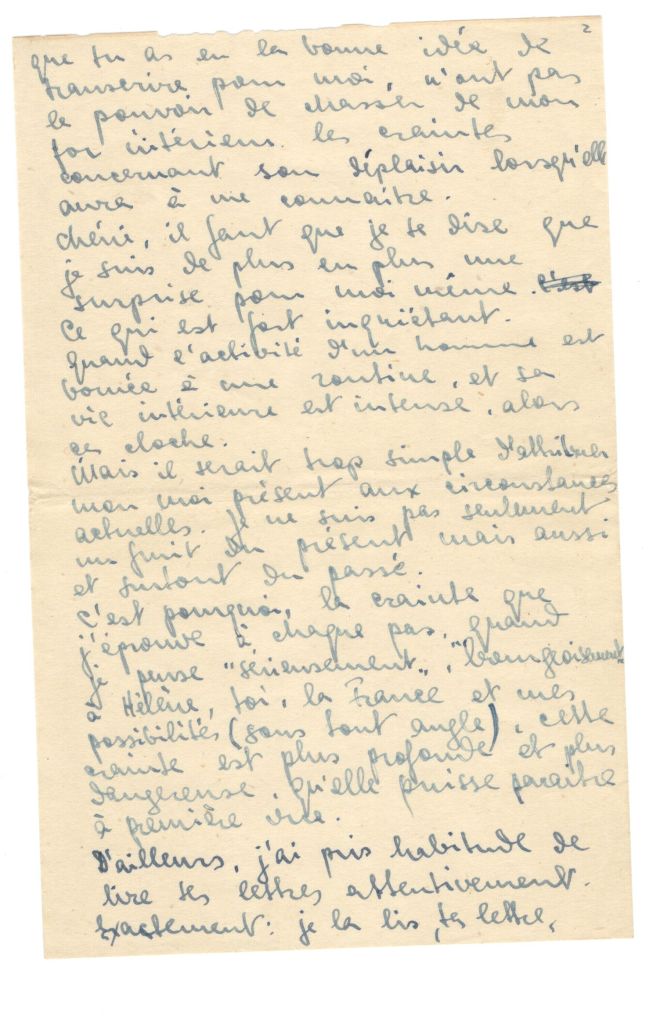 2
que tu as eu la bonne idée de
transcrire pour moi, n'ont pas
le pouvoir de chasser de mon
for intérieur les craintes
concernant son déplaisir lorsqu'elle
aura à me connaître.
Chéri, il faut que je te dise que
je suis de plus en plus une
surprise pour moi même. c'est
Ce qui est fort inquiétant.
Quand l'activité d'un homme est
bornée à une routine, et sa
vie intérieure est intense, alors
ça cloche.
Mais il serait trop simple d'attribuer
mon moi présent aux circonstances
actuelles. Je ne suis pas seulement
un fruit du présent mais aussi
et surtout du passé.
C'est pourquoi, la crainte que
j'éprouve à chaque pas, quand
je pense "sérieusement", "bourgeoisement"
à Hélène, toi, la France et mes
possibilités (sous tout angle), cette
crainte est plus profonde et plus
dangereuse, qu'elle puisse paraître
à première vue.
D'ailleurs, j'ai pris habitude de
lire tes lettres attentivement.
Exactement: je la lis, ta lettre,